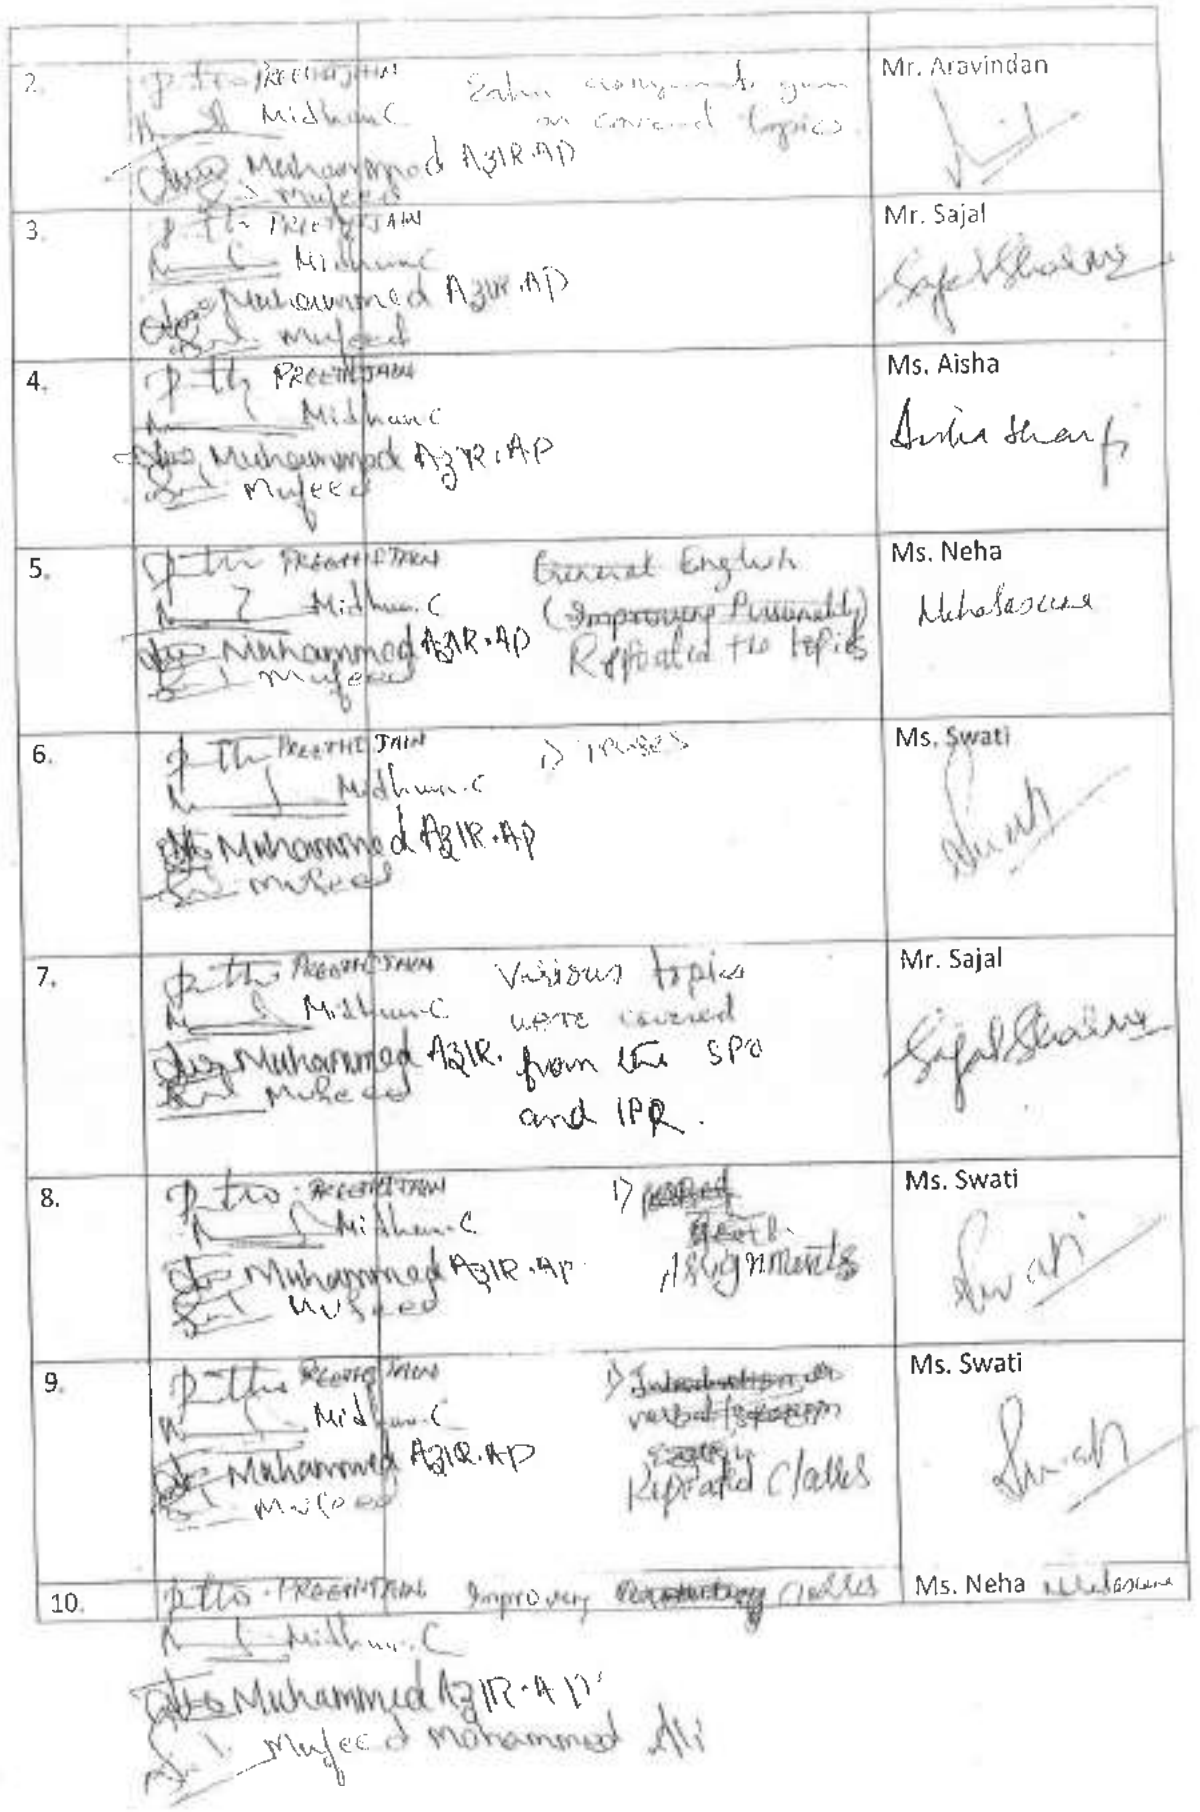 2.
PREETHI JAIN
Midhun C
Muhammed AZIR.AP
Mufeed
Extra assignments given
on covered topics.
Mr. Aravindan
3.
PREETHI JAIN
Midhun C
Muhammed AZIR.AP
Mufeed
Mr. Sajal
Sajal Sharma
4.
PREETHI JAIN
Midhun C
Muhammed AZIR.AP
Mufeed
Ms. Aisha
Aisha
5.
PREETHI JAIN
Midhun.C
Muhammed AZIR.AP
Mufeed
General English
(Improving Personality)
Repeated the topics
Ms. Neha
Neha
6.
PREETHI JAIN
Midhun.C
Muhammed AZIR.AP
Mufeed
1)
Ms. Swati
Swati
7.
PREETHI JAIN
Midhun C
Muhammed AZIR.
Mufeed
Various topics
were covered
from the SPO
and IPR.
Mr. Sajal
Sajal Sharma
8.
PREETHI JAIN
Midhun.C
Muhammed AZIR.AP
Mufeed
1)
Assignments
Ms. Swati
Swati
9.
PREETHI JAIN
Midhun.C
Muhammed AZIR.AP
Mufeed
1) Introduction
verbal
Repeated Classes
Ms. Swati
Swati
10.
PREETHI JAIN
Midhun.C
Muhammed AZIR.AP
Mufeed Mohammed Ali
Improving Classes
Ms. Neha